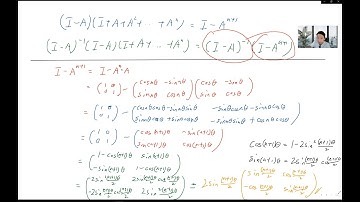 (I-A)(I+A+A²+..+Aⁿ) = I-Aⁿ⁺¹
(I-A)⁻¹(I-A)(I+A+..+Aⁿ) = (I-A)⁻¹(I-Aⁿ⁺¹)
I-Aⁿ⁺¹ = I-Aⁿ·A
= (1 0 / 0 1) - (cosnθ -sinnθ / sinnθ cosnθ)(cosθ -sinθ / sinθ cosθ)
= (1 0 / 0 1) - (cosnθcosθ-sinnθsinθ -sinθcosnθ-sinnθcosθ / sinnθcosθ+cosnθsinθ -sinnθsinθ+cosnθcosθ)
= (1 0 / 0 1) - (cos(n+1)θ -sin(n+1)θ / sin(n+1)θ cos(n+1)θ)
cos(n+1)θ = 1-2sin²(n+1)θ/2
= (1-cos(n+1)θ sin(n+1)θ / -sin(n+1)θ 1-cos(n+1)θ)
sin(n+1)θ = 2sin(n+1)θ/2 cos(n+1)θ/2
= (2sin²(n+1)θ/2 2sin(n+1)θ/2 cos(n+1)θ/2 / -2sin(n+1)θ/2 cos(n+1)θ/2 2sin²(n+1)θ/2) = 2sin(n+1)θ/2 (sin(n+1)θ/2 cos(n+1)θ/2 / -cos(n+1)θ/2 sin(n+1)θ/2)